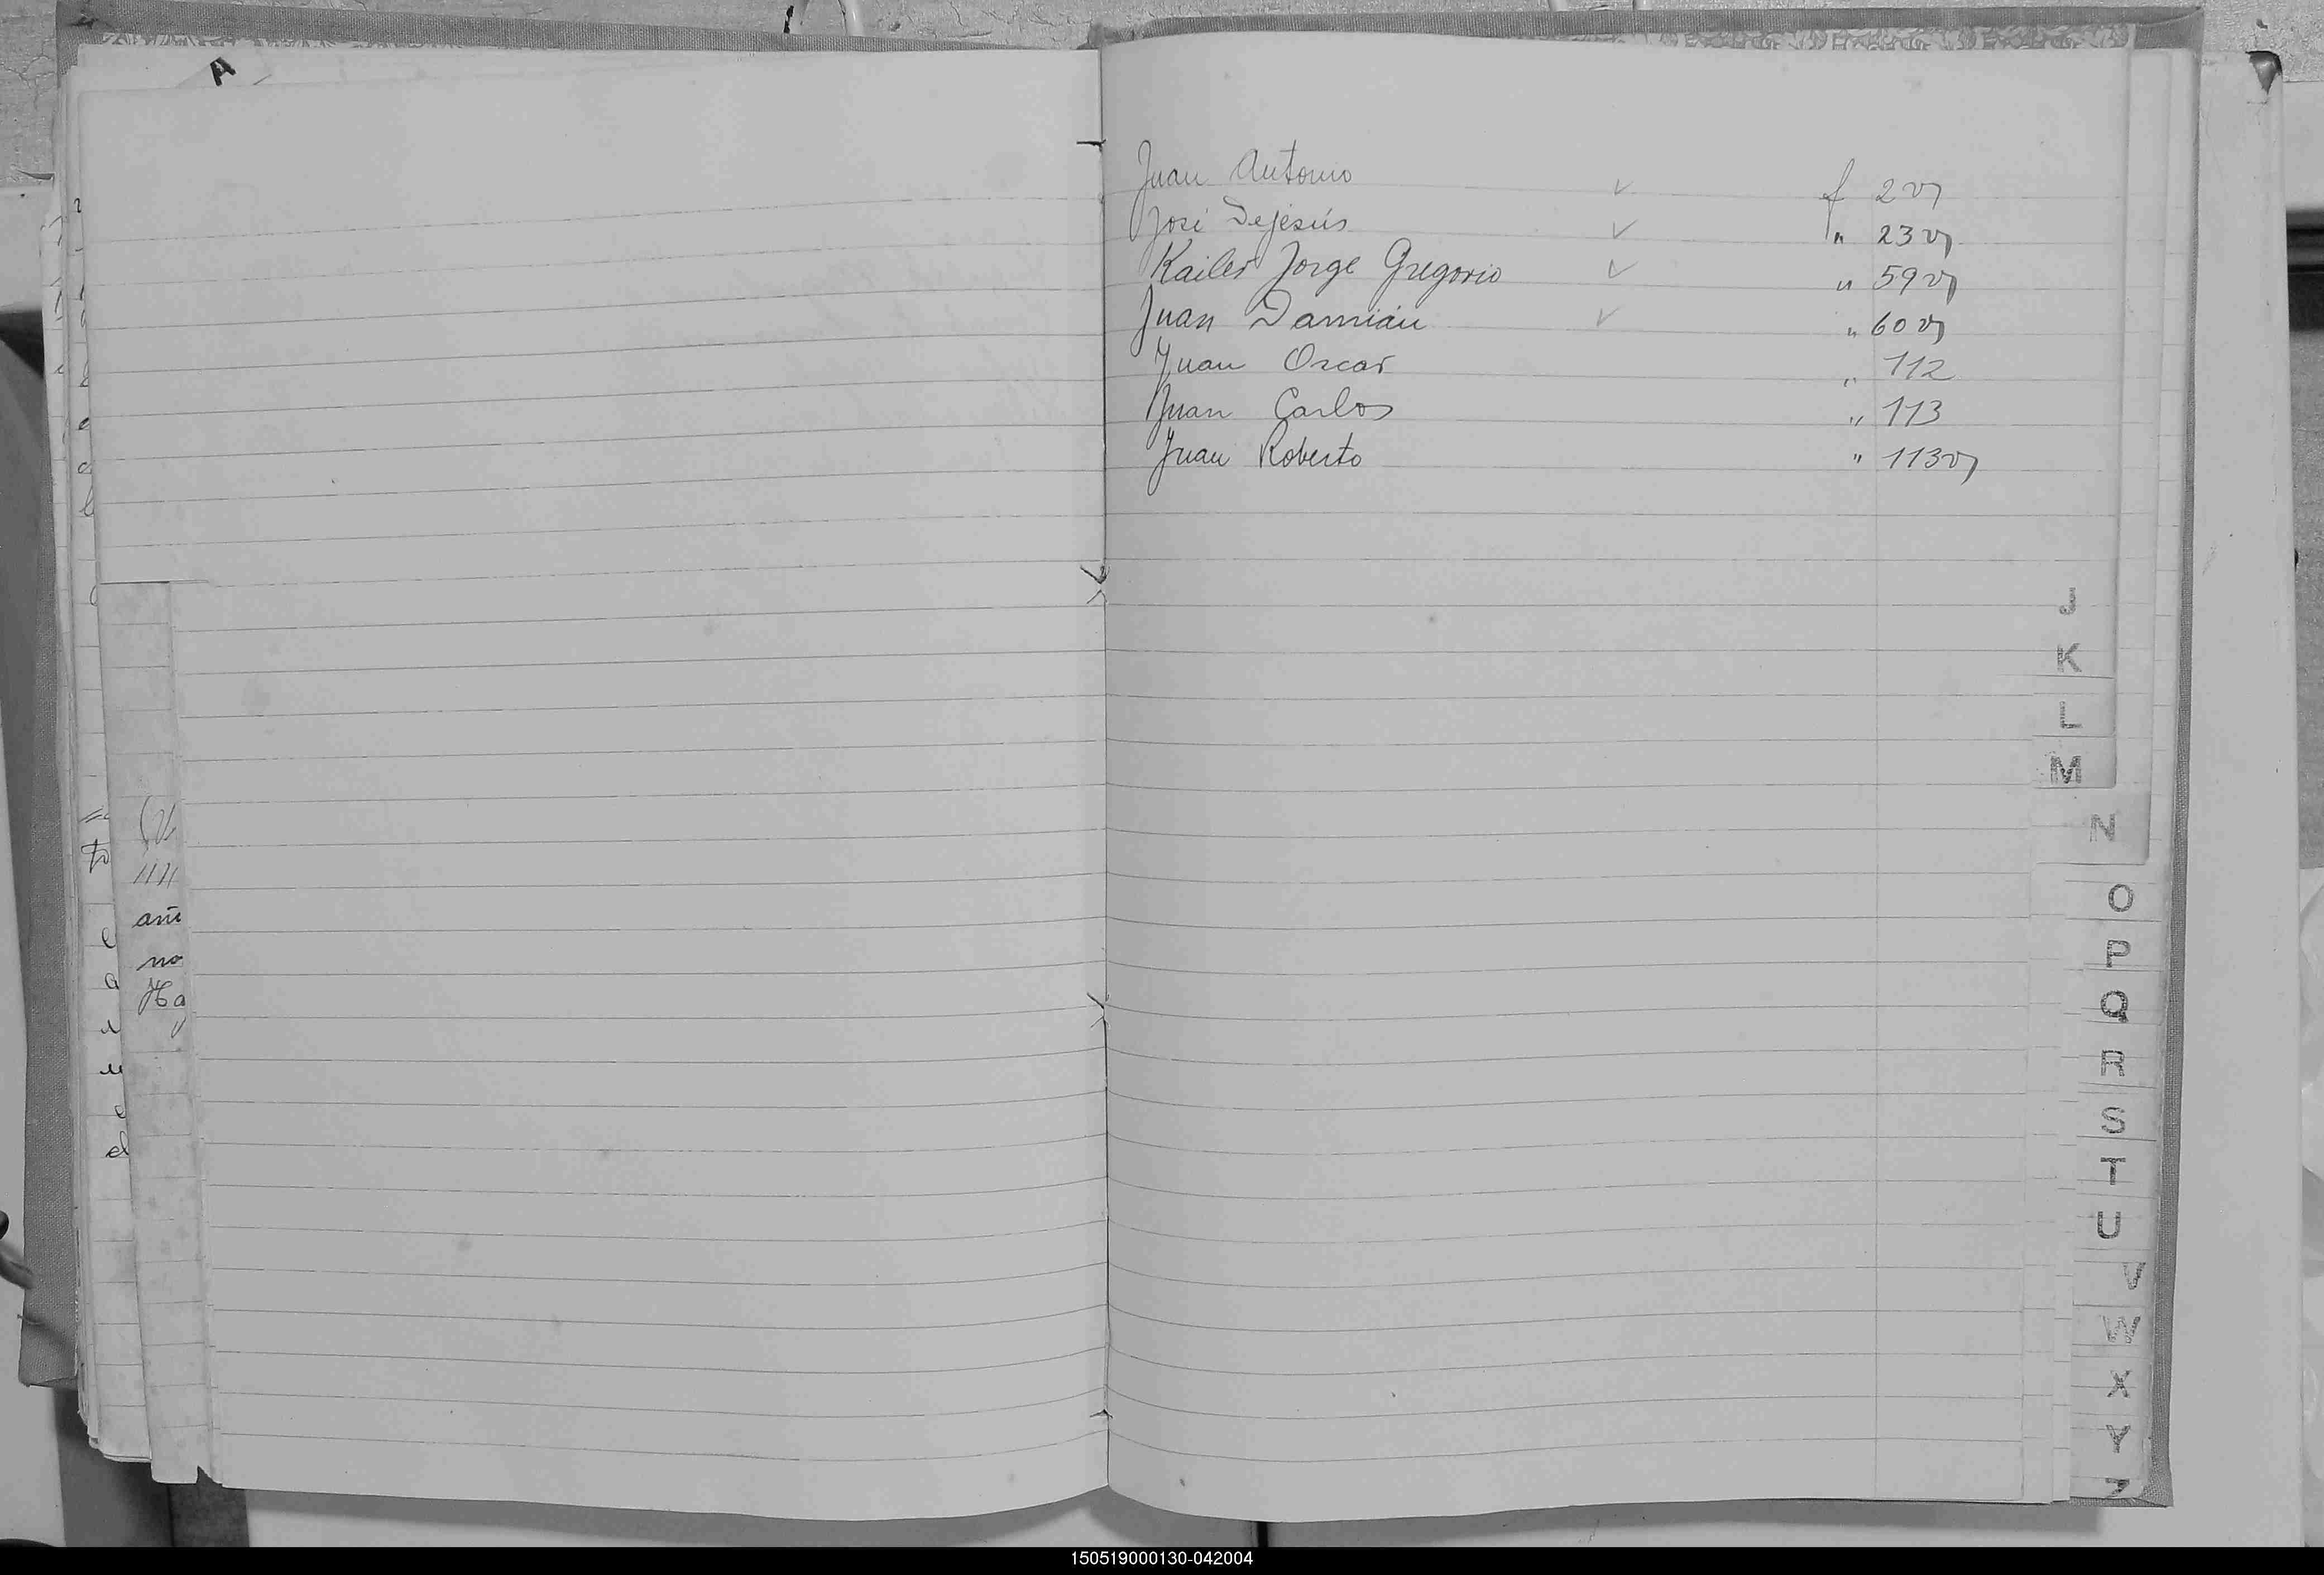 A
Juan Antonio ✓ f 2 v
José Dejesús ✓ " 23 v
Kailer Jorge Gregorio ✓ " 59 v
Juan Damián ✓ " 60 v
Juan Oscar " 112
Juan Carlos " 113
Juan Roberto " 113 v
J
K
L
M
N
O
P
Q
R
S
T
U
V
W
X
Y
Z
no
150519000130-042004